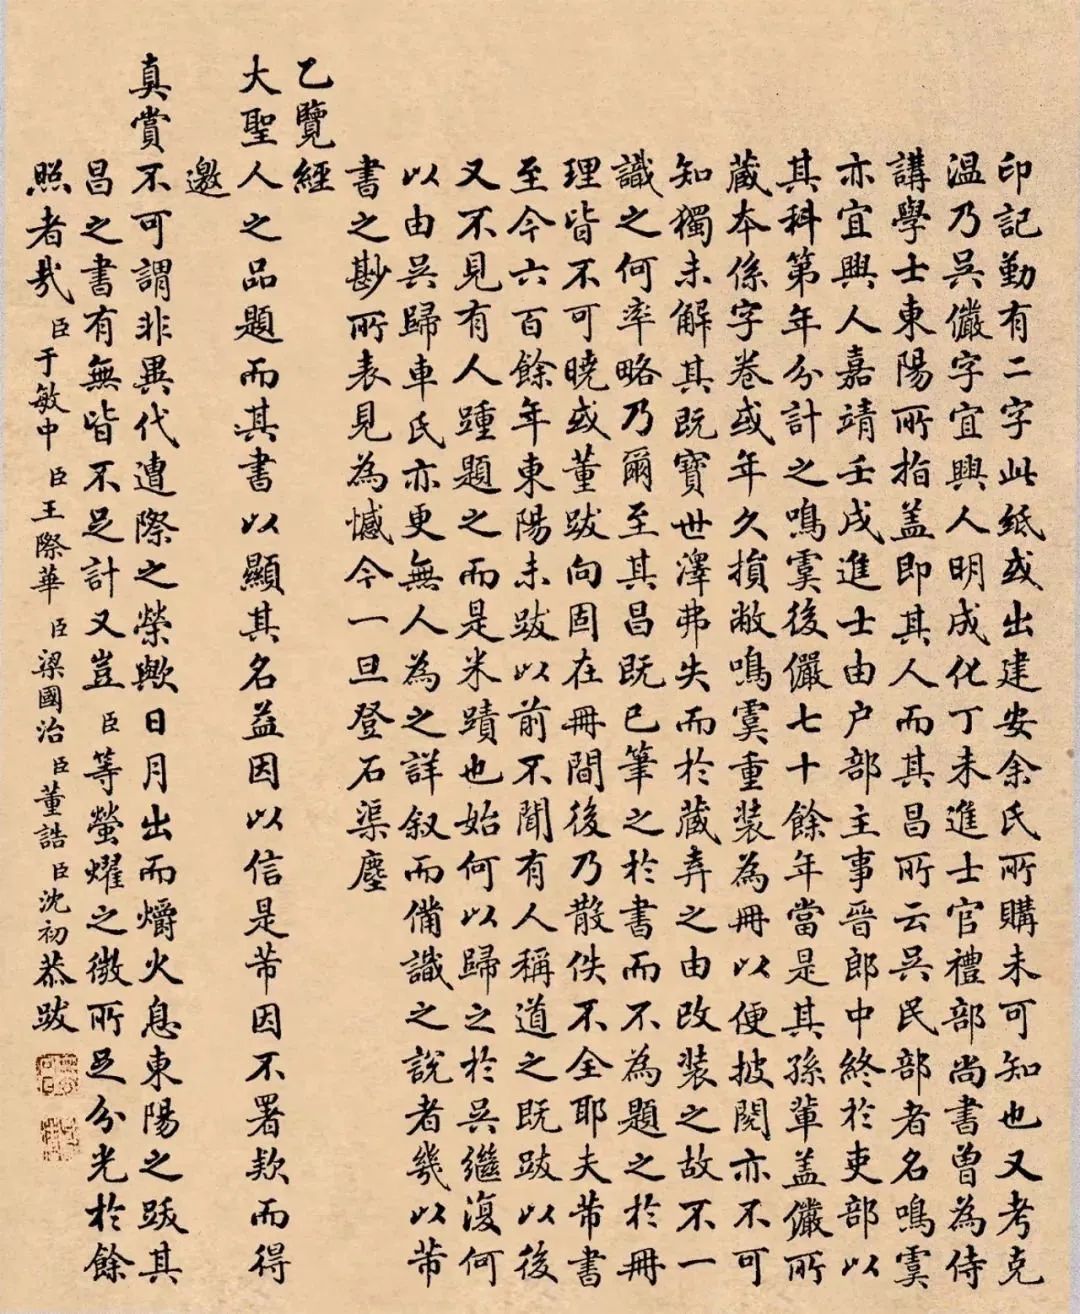 印記勤有二字此紙或出建安余氏所購未可知也又考克
温乃吳儼字宜興人明成化丁未進士官禮部尚書曾為侍
講學士東陽所指蓋即其人而其昌所云吳民部者名鳴虞
亦宜興人嘉靖壬戌進士由户部主事晉郎中終於吏部以
其科第年分計之鳴虞後儼七十餘年當是其孫輩蓋儼所
藏本係字卷或年久損敝鳴虞重裝為冊以便披閱亦不可
知獨未解其既寶世澤弗失而於藏弆之由改裝之故不一
識之何率略乃爾至其昌既已筆之於書而不為題之於冊
理皆不可曉或董跋向固在冊間後乃散佚不全耶夫芾書
至今六百餘年東陽未跋以前不聞有人稱道之既跋以後
又不見有人踵題之而是米蹟也始何以歸之於吳繼復何
以由吳歸車氏亦更無人為之詳叙而備識之說者幾以芾
書之尠所表見為憾今一旦登石渠塵
乙覽經
大聖人之品題而其書以顯其名益因以信是芾因不署欵而得
邀
真賞不可謂非異代遭際之榮歟日月出而爝火息東陽之跋其
昌之書有無皆不足計又豈臣等螢燿之微所足分光於餘
照者哉臣于敏中臣王際華臣梁國治臣董誥臣沈初恭跋